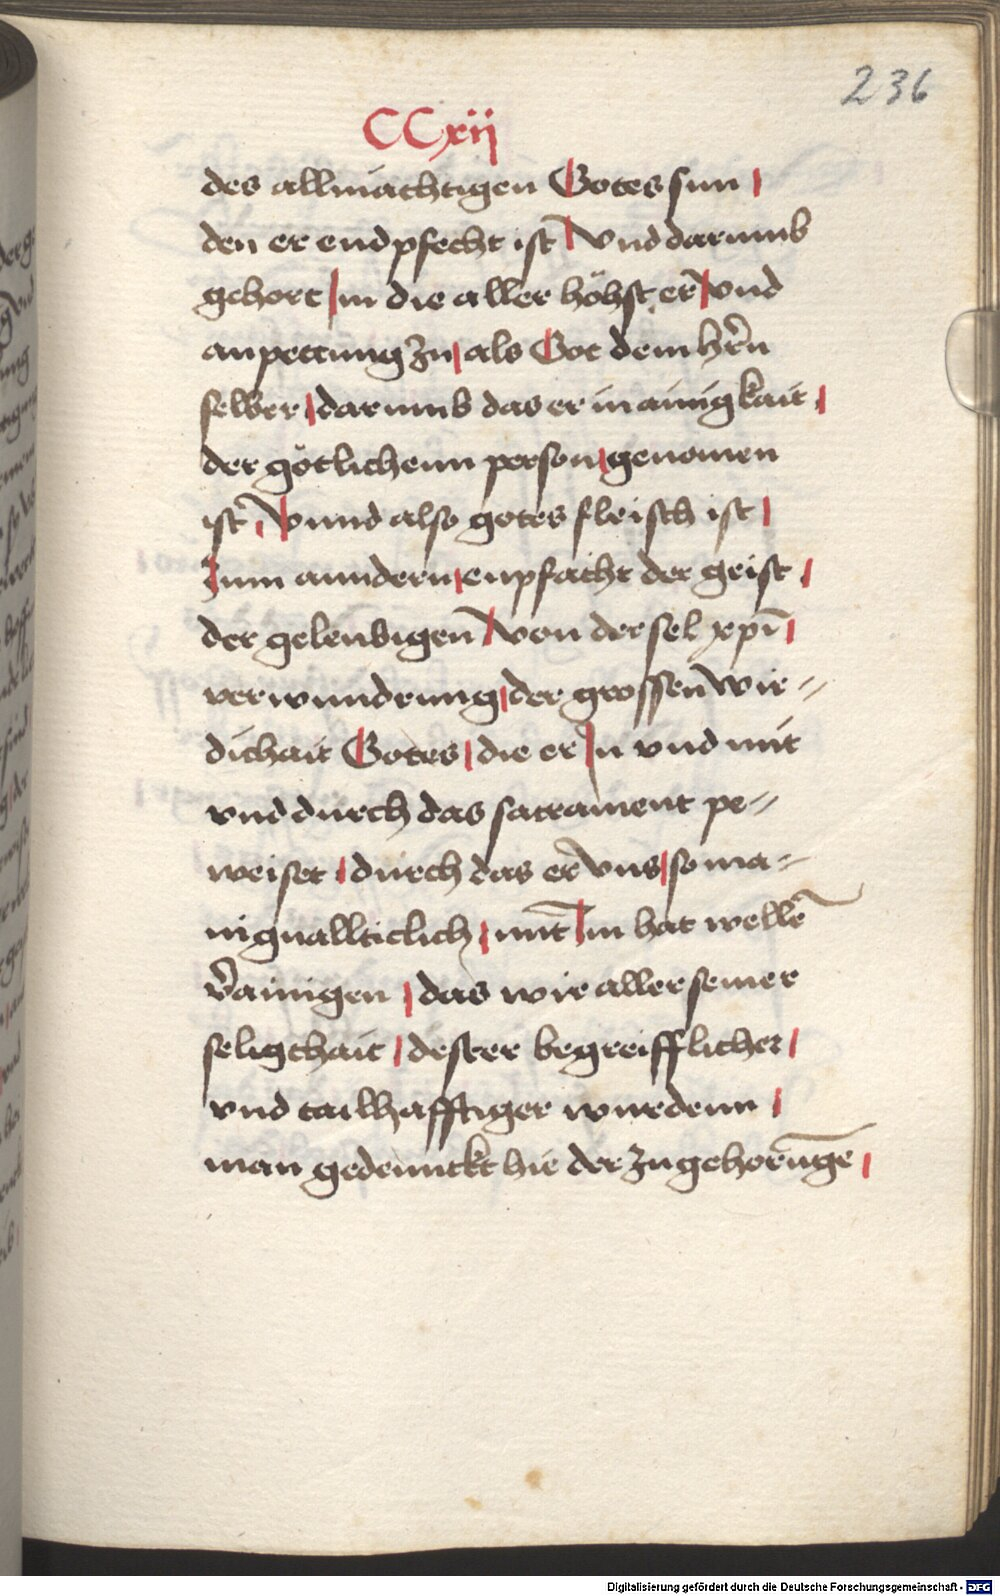 236
CCxii
des allmächtigen Gotes sun |
den er endpfecht ist̄ | Vnd darumb
gehort | in die aller höhst er̄ | vnd
anpettung zu | als Got dem hr̄n
selber | darumb das er in ainigkait |
der götlichenn person | genomen
ist | Vnnd also gotes fleisch ist |
Zum anndern | enpfächt der geist |
der gelenbigen̄ | von der sel xp̄i |
verwundrung | der grossen wir〃
dichait Gotes | die er In vnd mit
vnd durch das sacrament pe〃
weiset | durch das er vns | so ma〃
niguallticlich | mit̄ | im hat wellē
v̄ainigen | das wir aller seiner
seligchait | dester begreifflicher |
vnd tailhafftiger wurdenn |
man gedennckt hie der zugehorūgē |
Digitalisierung gefördert durch die Deutsche Forschungsgemeinschaft - DFG